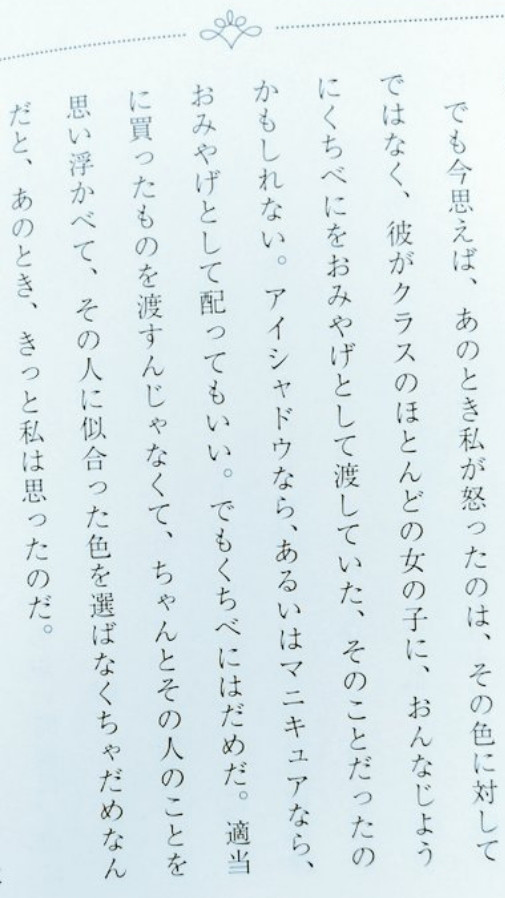 でも今思えば、あのとき私が怒ったのは、その色に対して
ではなく、彼がクラスのほとんどの女の子に、おんなじよう
にくちべにをおみやげとして渡していた、そのことだったの
かもしれない。アイシャドウなら、あるいはマニキュアなら、
おみやげとして配ってもいい。でもくちべにはだめだ。適当
に買ったものを渡すんじゃなくて、ちゃんとその人のことを
思い浮かべて、その人に似合った色を選ばなくちゃだめなん
だと、あのとき、きっと私は思ったのだ。